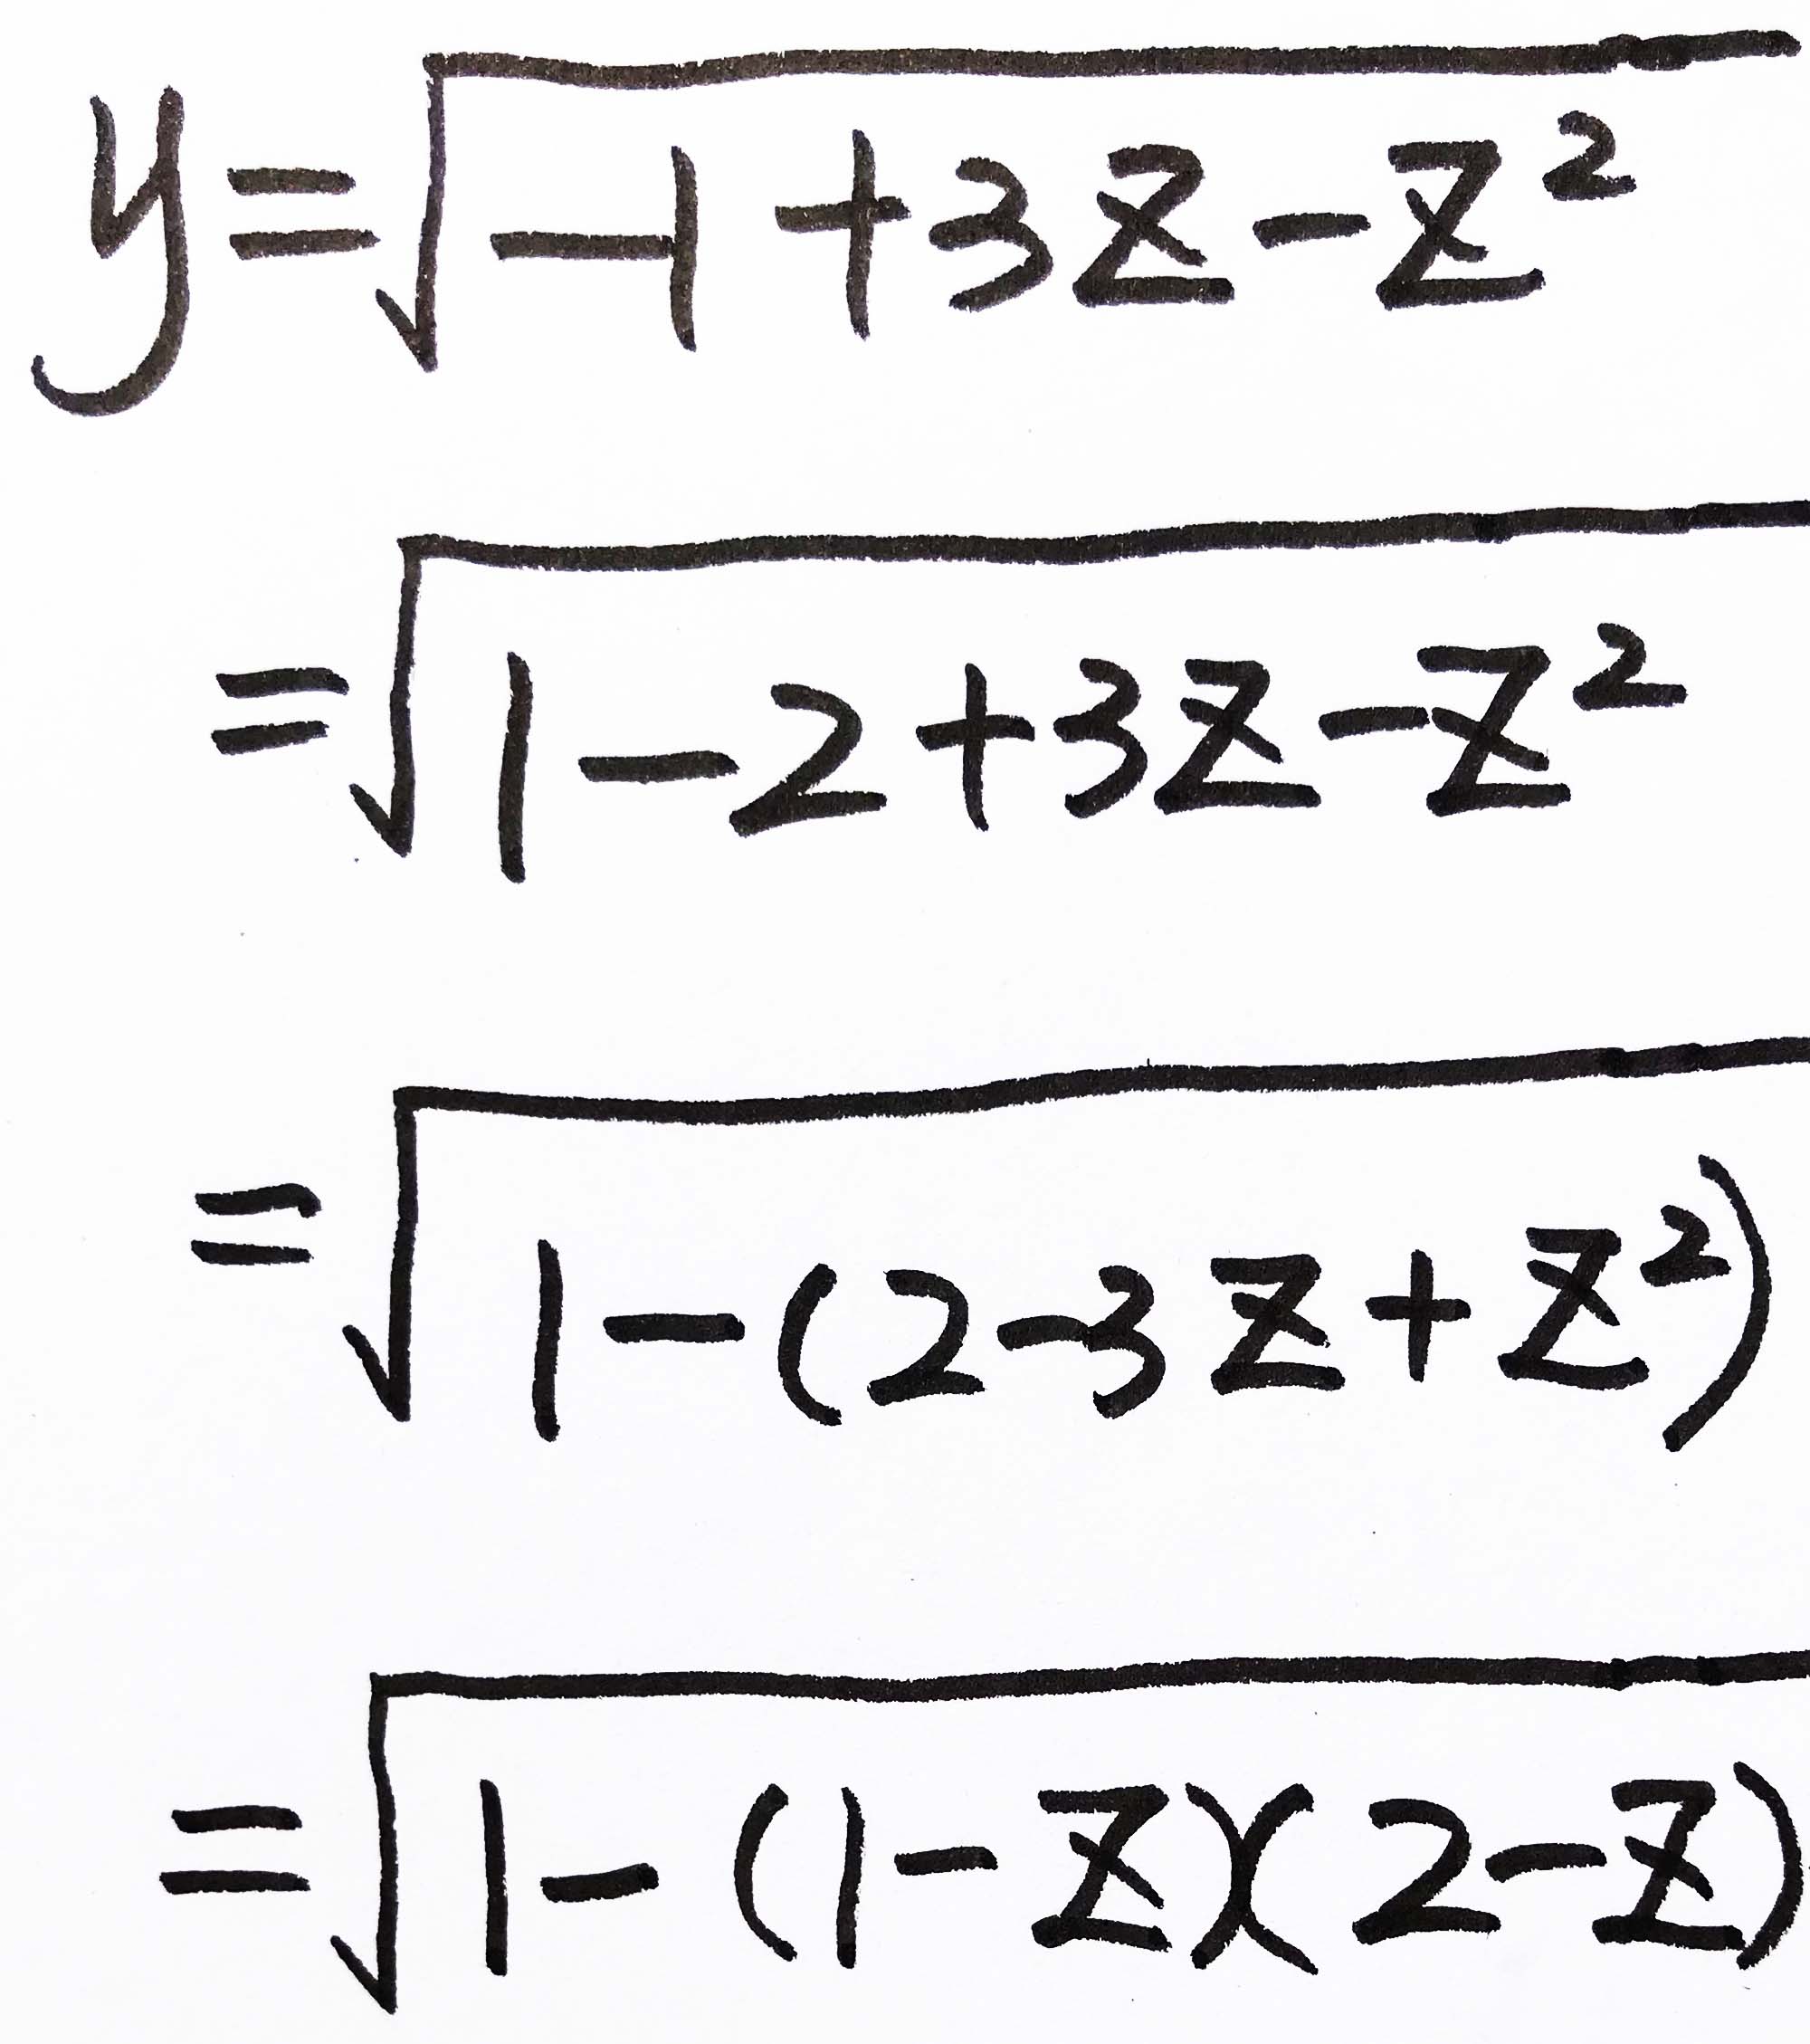 y=√(-1+3z-z²)
=√(1-2+3z-z²)
=√(1-(2-3z+z²))
=√(1-(1-z)(2-z))